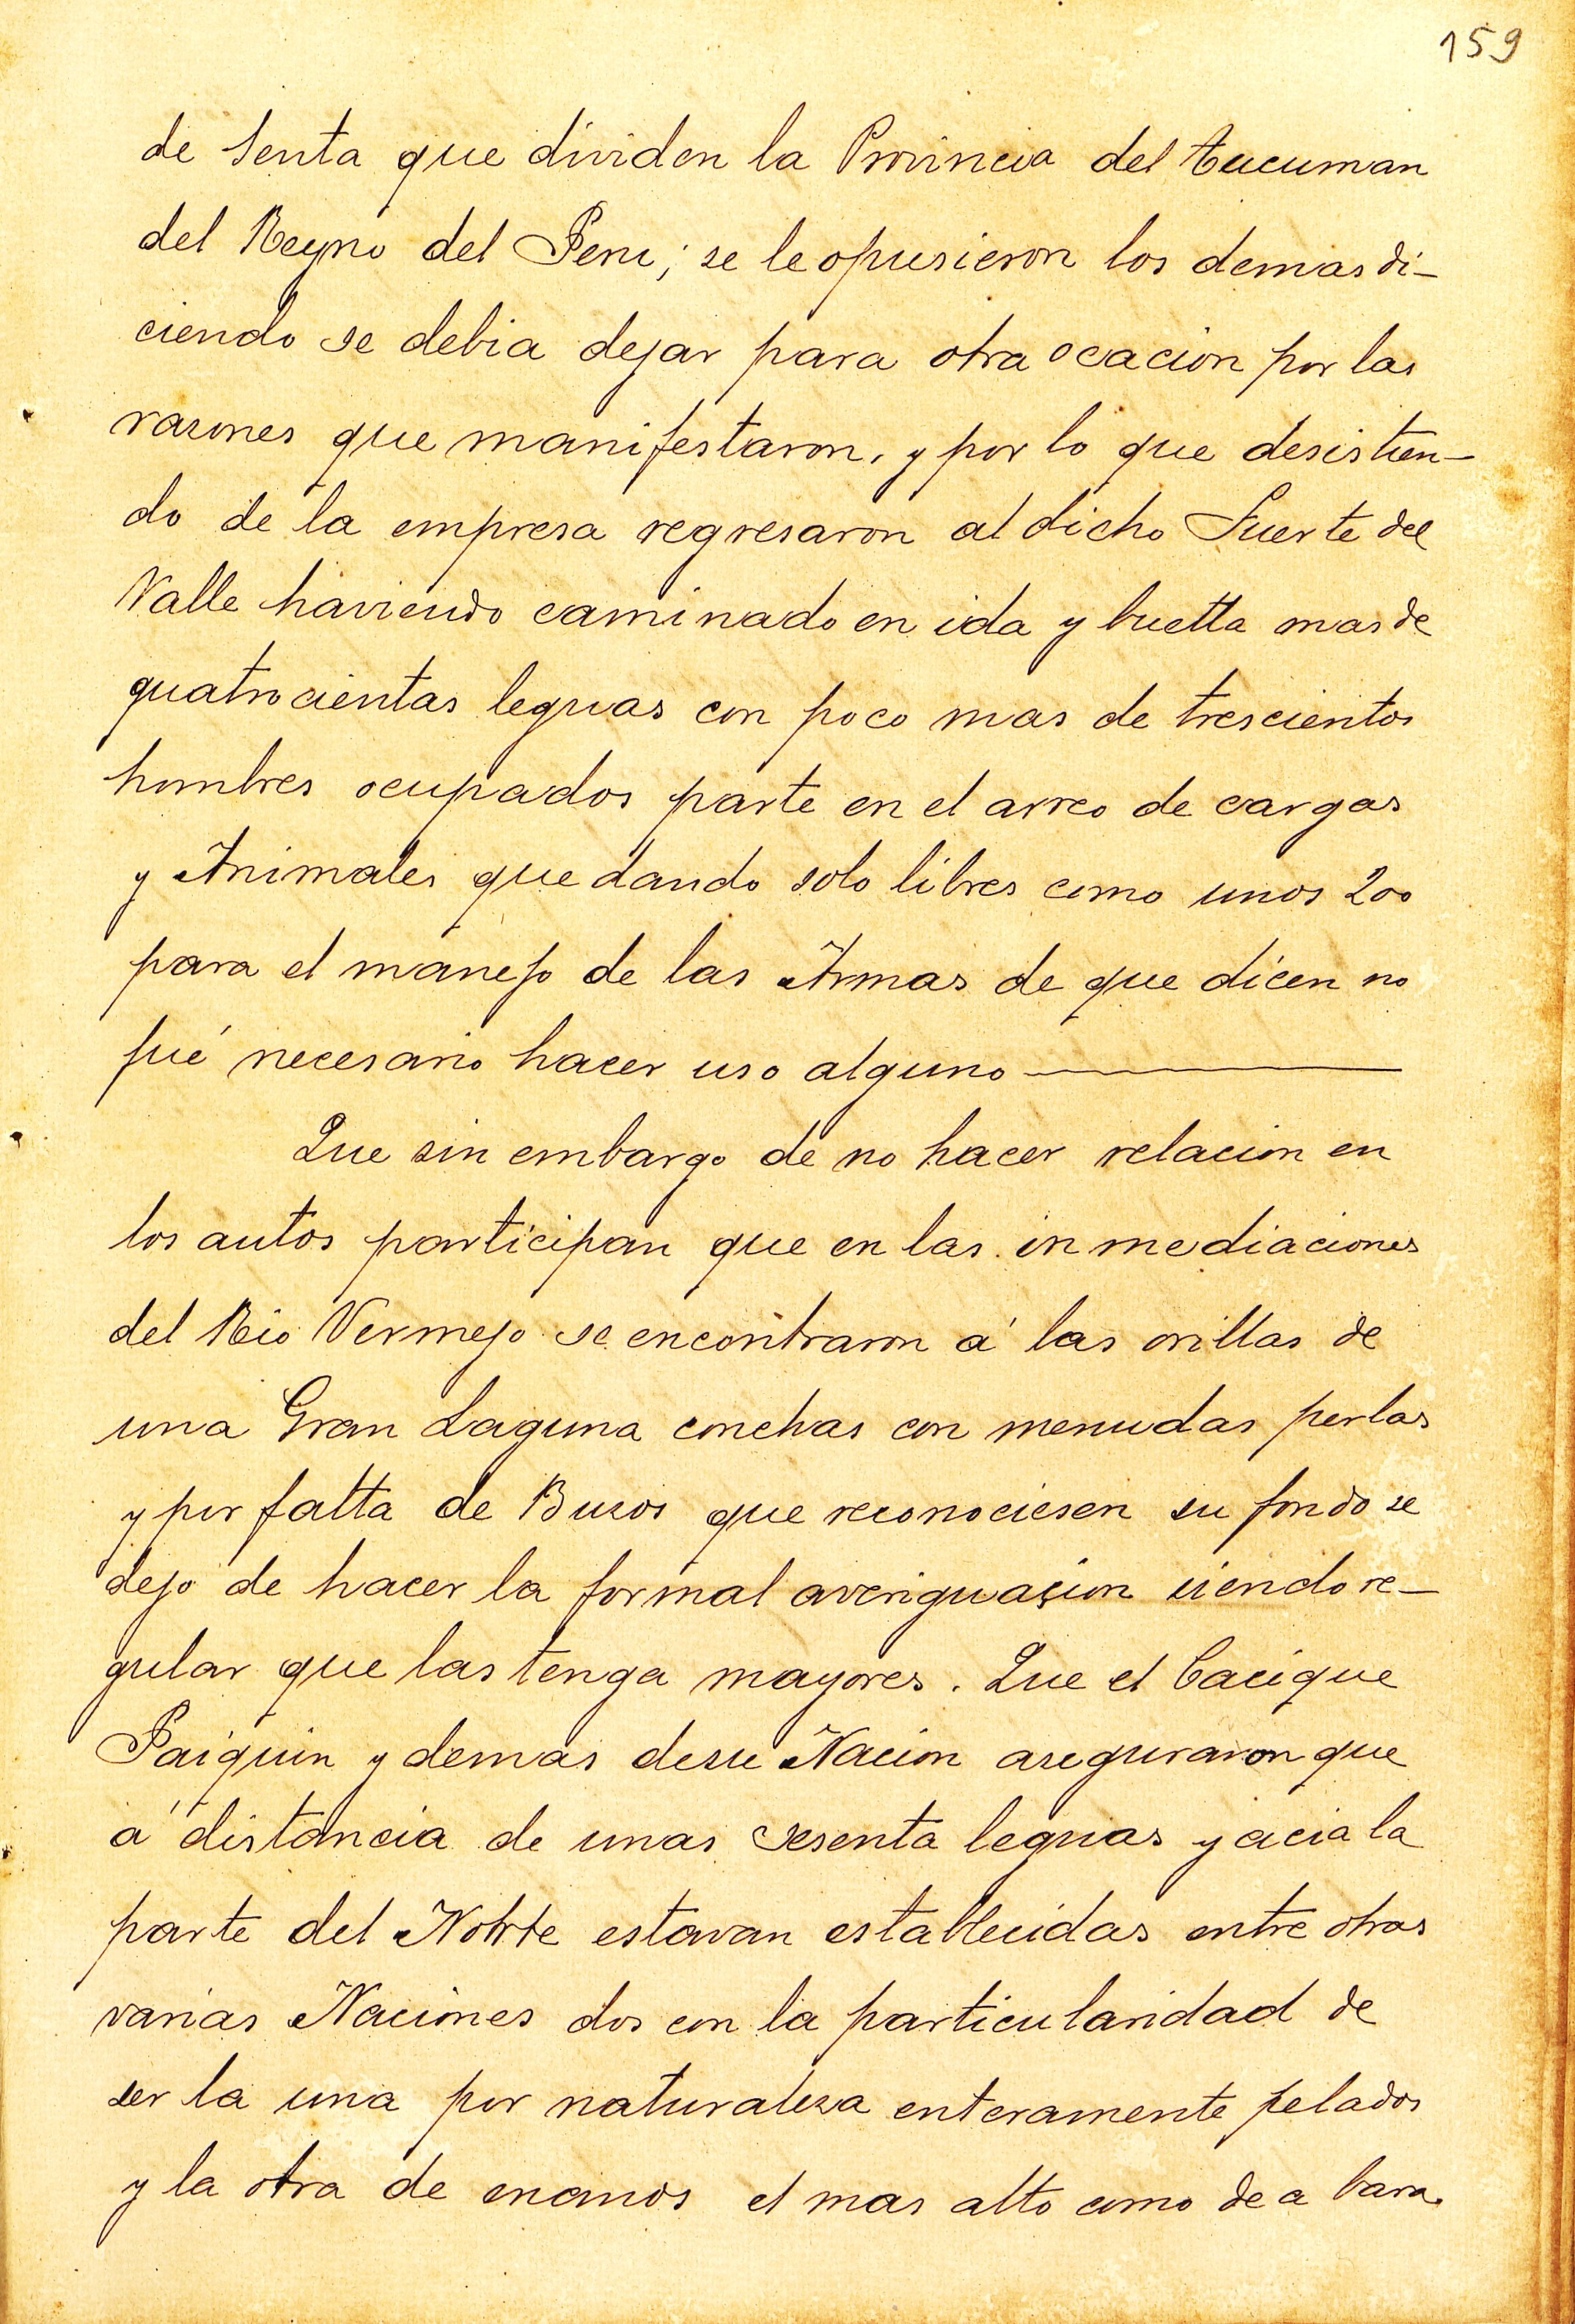 159
de Senta que dividen la Provincia del Tucuman
del Reyno del Peru; se le opusieron los demas di-
ciendo se debia dejar para otra ocacion por las
rasones que manifestaron, y por lo que desistien-
do de la empresa regresaron al dicho Fuerte del
Valle haviendo caminado en ida y buelta mas de
quatrocientas leguas con poco mas de trescientos
hombres ocupados parte en el arreo de cargas
y Animales quedando solo libres como unos 200
para el manejo de las Armas de que dicen no
fué necesario hacer uso alguno
Que sin embargo de no hacer relacion en
los autos participan que en las inmediaciones
del Rio Vermejo se encontraron á las orillas de
una Gran Laguna conchas con menudas perlas
y por falta de Busos que reconociesen su fondo se
dejo de hacer la formal averiguacion siendo re-
gular que las tenga mayores. Que el Cacique
Paiquin y demas de su Nacion aseguraron que
á distancia de unas sesenta leguas y acia la
parte del Norte estavan establecidas entre otras
varias Naciones dos con la particularidad de
ser la una por naturalesa enteramente pelados
y la otra de enanos el mas alto como de a bara.